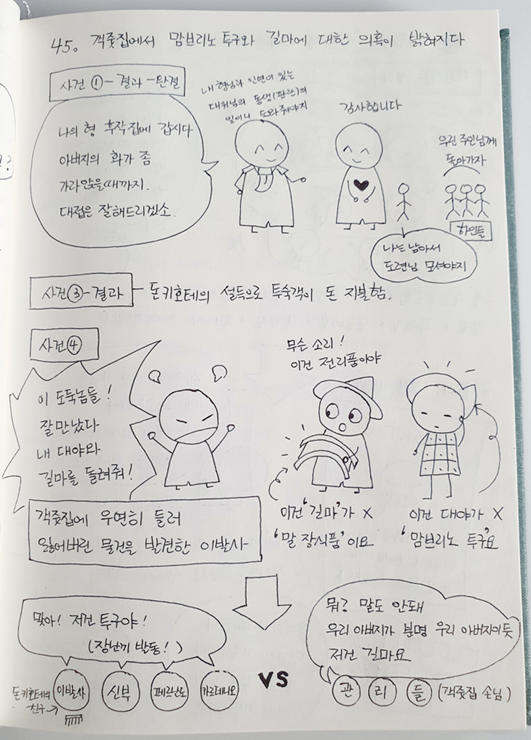 45. 객줏집에서 맘브리노 투구와 길마에 대한 의혹이 밝혀지다
사건 ① - 결과 - 완결
나의 형 후작집에 갑시다
아버지의 화가 좀
가라앉을때까지.
대접은 잘해드리겠소.
내 형님과 인연이 있는
대위님의 동생(판관)의
일이니 도와줘야지
감사합니다
우린 주인님께
돌아가자
하인들
나는 남아서
도련님 모셔야지
사건 ③ - 결과 - 돈키호테의 설득으로 투숙객이 돈 지불함.
사건 ④
이 도둑놈들!
잘 만났다
내 대야와
길마를 돌려줘!
무슨 소리!
이건 전리품이야
객줏집에 우연히 들러
잃어버린 물건을 발견한 이발사
이건 '길마'가 X
'말 장식품'이요
이건 대야가 X
'맘브리노 투구'요
맞아! 저건 투구야!
(장난기 발동!)
돈키호테의
친구→
이발사
신부
페르난도
카르데니오
VS
뭐? 말도 안돼
우리 아버지가 분명 우리 아버지이듯
저건 길마요
관 리 들 (객줏집 손님)